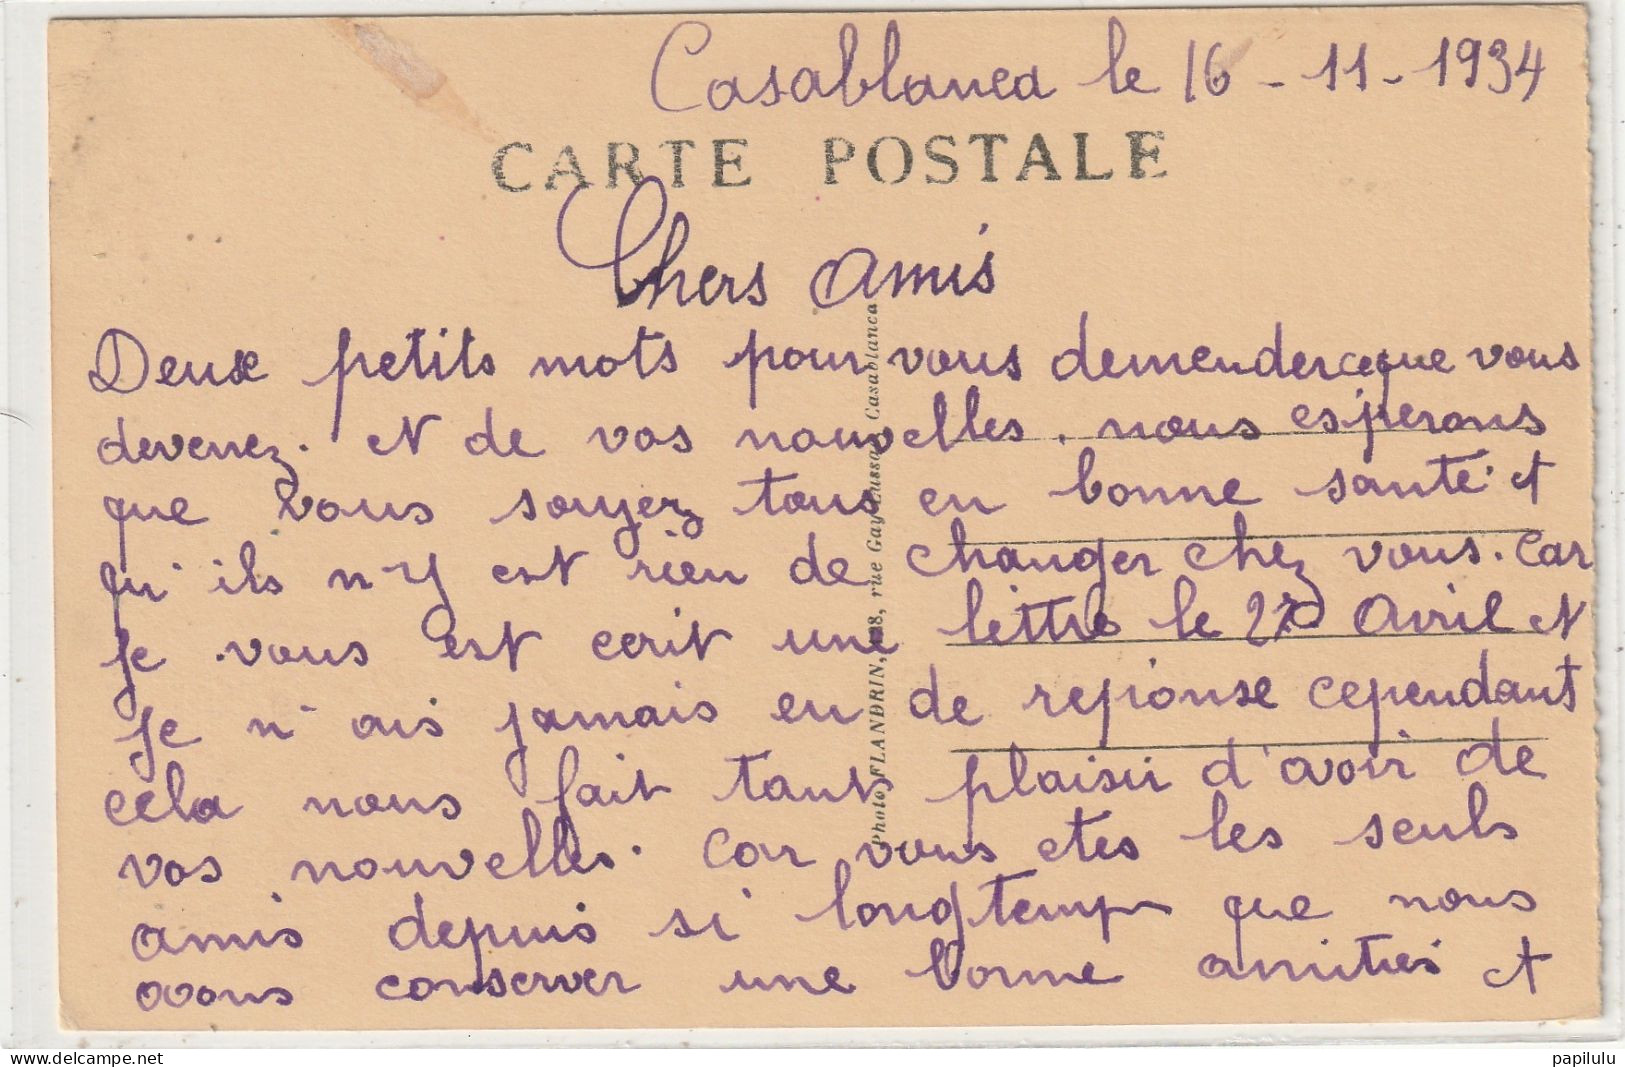 Casablanca le 16-11-1934
CARTE POSTALE
Chers amis
Deux petits mots pour vous demender ceque vous
devenez. et de vos nouvelles. nous esperons
que vous soyez tous en bonne santé. et
qu'ils n'y est rien de changer chez vous. car
je vous est ecrit une lettre le Avril et
je n'ais jamais eu de reponse cependant
cela nous fait tants plaisir d'avoir de
vos nouvelles. car vous etes les seuls
amis depuis si longtemps que nous
avons conserver une bonne amitiés et
Photo FLANDRIN, rue Gay-Lussac, Casablanca
papilulu
delcampe.net